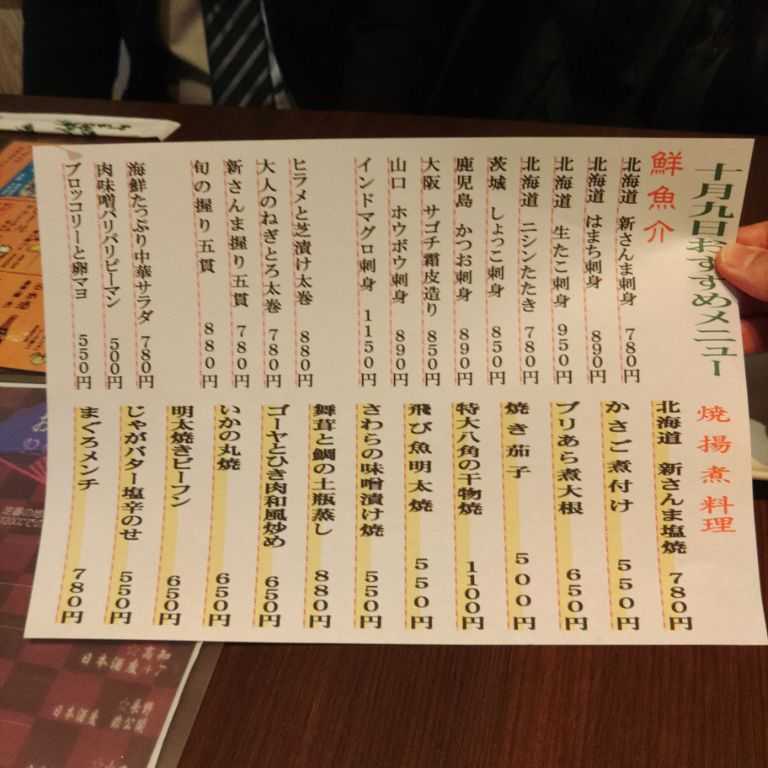 十月九日おすすめメニュー
鮮魚介
北海道 新さんま刺身 780円
北海道 はまち刺身 890円
北海道 生たこ刺身 950円
北海道 ニシンたたき 780円
茨城 しょっこ刺身 850円
鹿児島 かつお刺身 890円
大阪 サゴチ霜皮造り 850円
山口 ホウボウ刺身 890円
インドマグロ刺身 1150円
ヒラメと芝漬け太巻 880円
大人のねぎとろ太巻 780円
新さんま握り五貫 780円
旬の握り五貫 880円
海鮮たっぷり中華サラダ 780円
肉味噌パリパリピーマン 500円
ブロッコリーと卵マヨ 550円
焼揚煮料理
北海道 新さんま塩焼 780円
かさご煮付け 550円
ブリあら煮大根 650円
焼き茄子 500円
特大八角の干物焼 1100円
飛び魚明太焼 550円
さわらの味噌漬け焼 550円
舞茸と鯛の土瓶蒸し 880円
ゴーヤとひき肉和風炒め 650円
いかの丸焼 650円
明太焼きビーフン 650円
じゃがバター塩辛のせ 550円
まぐろメンチ 780円
☆高知
日本酒度 +7
☆長野
日本酒度 非公開